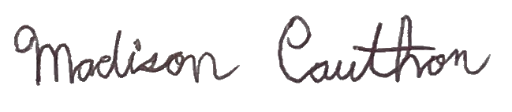 Madison Cauthon